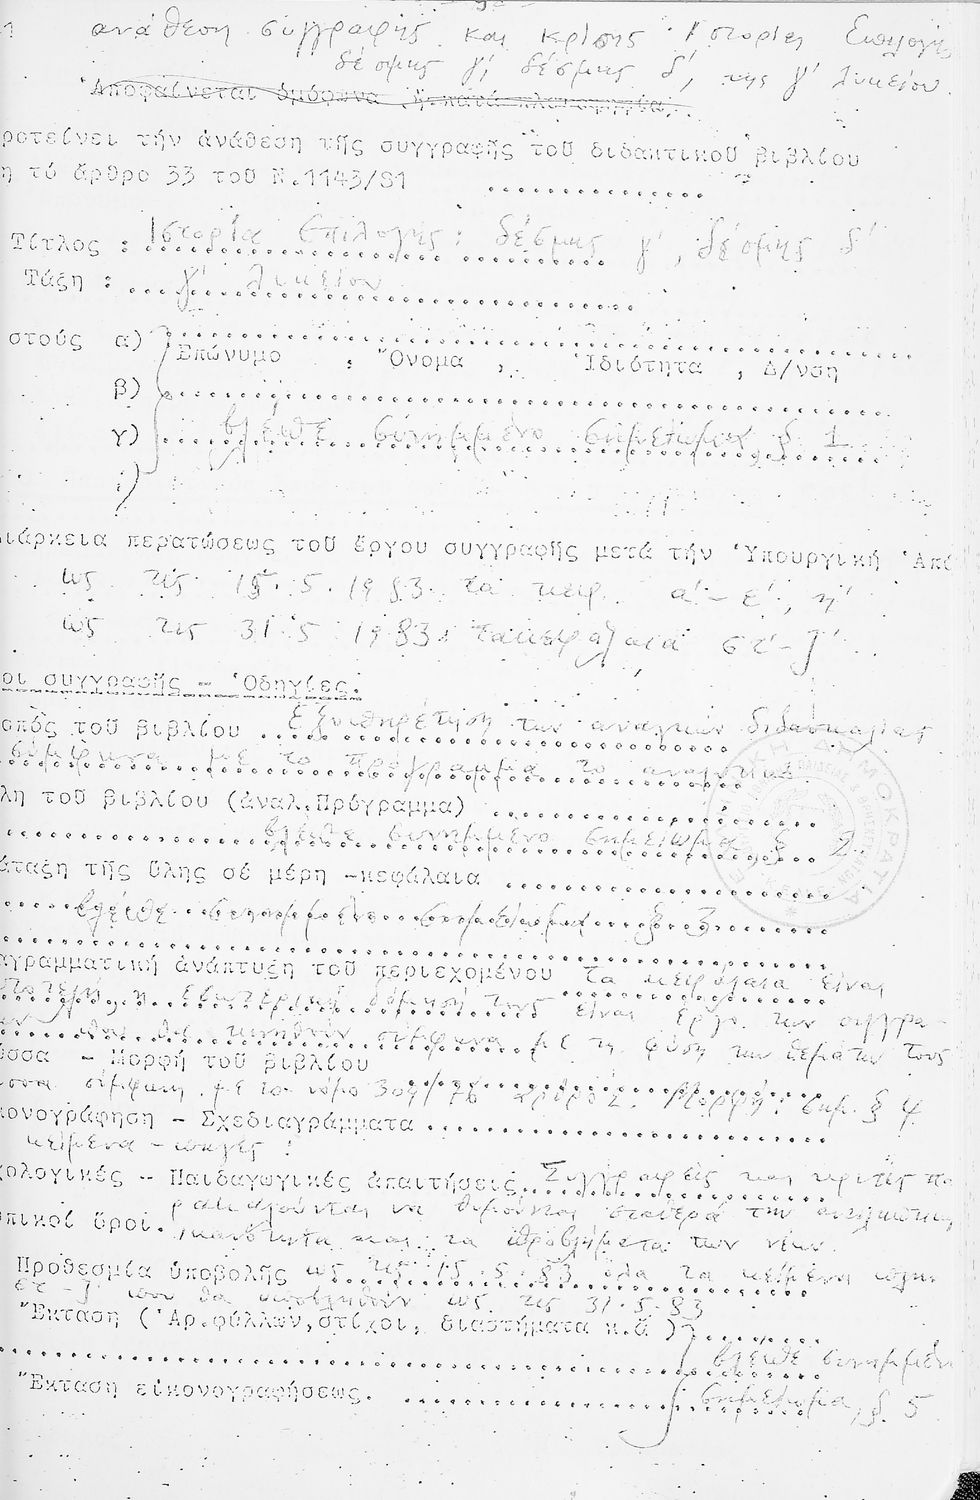 ανάθεση συγγραφής και κρίσης Ιστορίας Επιλογής
δέσμης γ', δέσμης δ', της γ' Λυκείου
Ἀποφαίνεται ὁμόφωνα ἤ κατά πλειοψηφία
ροτείνει τήν ἀνάθεση τῆς συγγραφῆς τοῦ διδακτικοῦ βιβλίου
η τό ἄρθρο 33 τοῦ Ν.1143/81 ................
Τίτλος : Ιστορία Επιλογής: δέσμης γ', δέσμης δ'
Τάξη : γ' Λυκείου
στούς α) ................
Ἐπώνυμο , Ὄνομα , Ἰδιότητα , Δ/νση
β) ................
γ) βλέπε συνημμένο σημείωμα § 1
ιάρκεια περατώσεως τοῦ ἔργου συγγραφῆς μετά τήν Ὑπουργική Ἀπό
ως τις 15.5.1983 τα κεφ. α'-ε', η'
ως τις 31.5.1983 τα κεφάλαια στ'-ζ'
οι συγγραφῆς - Ὁδηγίες.
οπός τοῦ βιβλίου Εξυπηρέτηση των αναγκών διδασκαλίας
σύμφωνα με το πρόγραμμα το αναλυτικό
λη τοῦ βιβλίου (ἀναλ.Πρόγραμμα) ................
βλέπε συνημμένο σημείωμα § 2
άταξη τῆς ὕλης σέ μέρη -κεφάλαια ................
βλέπε συνημμένο σημείωμα § 3
αγραμματική ἀνάπτυξη τοῦ περιεχομένου τα κεφάλαια είναι
η εσωτερική δόμησή τους είναι έργο των συγγρα-
που θα κινηθούν σύμφωνα με τη φύση των θεμάτων τους
ῶσσα - Μορφή τοῦ βιβλίου
σύμφωνη με το νόμο 309/76 άρθρο 2. Μορφή: σημ. § 4
κονογράφηση - Σχεδιαγράμματα ................
κείμενα - πηγές:
χολογικές - Παιδαγωγικές ἀπαιτήσεις. Συγγραφείς και κριτές πα
ρακαλούνται να θυμούνται σταθερά την αντιληπτική
πικοί ὅροι. ικανότητα και τα προβλήματα των νέων.
Προθεσμία ὑποβολῆς ως τις 15.5.83 όλα τα κείμενα πλην
στ'-ζ' που θα υποβληθούν ως τις 31.5.83
Ἔκταση (Ἀρ.φύλλων,στίχοι, διαστήματα κ.ἄ ) ................
βλέπε συνημμένο
Ἔκταση εἰκονογραφήσεως. ................ σημείωμα, § 5